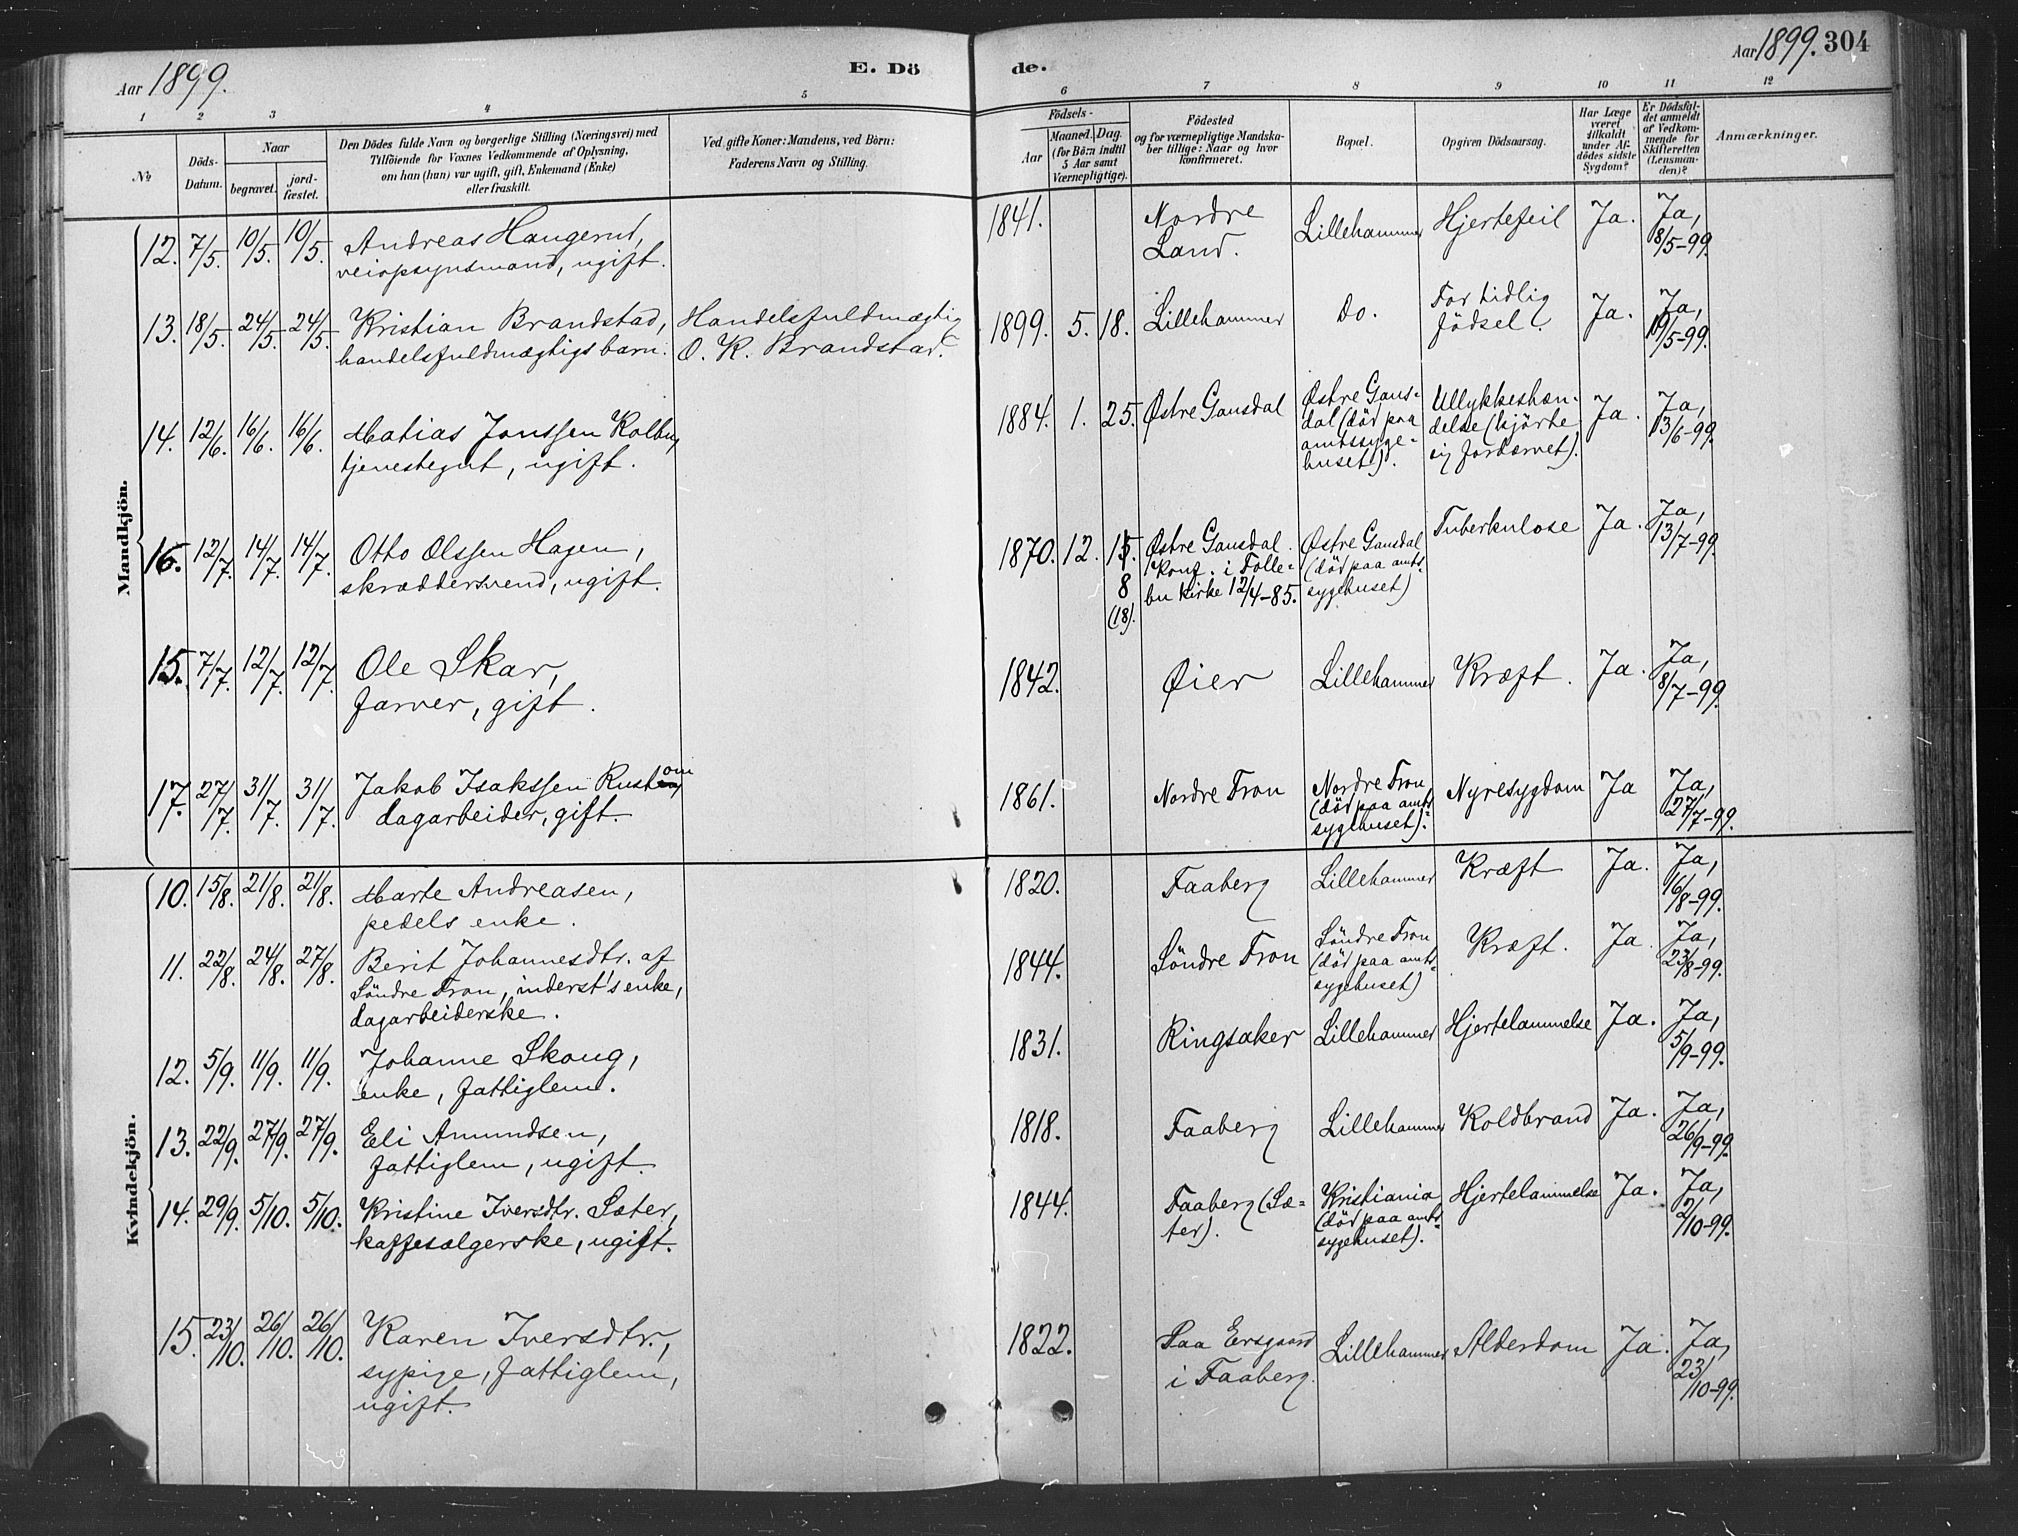 Aar 1899.
E. Dö
de.
Aar 1899. 304
1 2 3 4 5 6 7 8 9 10 11 12
№
Döds-
Datum.
Naar
begravet.
jord-
fæstet.
Den Dödes fulde Navn og borgerlige Stilling (Næringsvei) med
Tilföiende for Voxnes Vedkommende af Oplysning,
om han (hun) var ugift, gift, Enkemand (Enke)
eller fraskilt.
Ved gifte Koner: Mandens, ved Börn:
Faderens Navn og Stilling.
Födsels-
Aar
Maaned. Dag.
(for Börn indtil
5 Aar samt
Værnepligtige).
Födested
og for værnepligtige Mandska-
ber tillige: Naar og hvor
konfirmeret.
Bopæl.
Opgiven Dödsaarsag.
Har Læge
været
tilkaldt
under Af-
dödes sidste
Sygdom?
Er Dödsfal-
det anmeldt
af Vedkom-
mende for
Skifteretten
(Lensman-
den)?
Anmærkninger.
Mandkjön.
12. 7/5. 10/5. 10/5. Andreas Haugerud,
veiopsynsmand, ugift.
1841. Nordre
Land. Lillehammer Hjertefeil Ja. Ja,
8/5-99.
13. 18/5. 24/5. 24/5. Kristian Brandstad,
handelsfuldmægtigs barn.
Handelsfuldmægtig
O. K. Brandstad.
1899. 5. 18. Lillehammer Do. For tidlig
födsel. Ja. Ja,
19/5-99.
14. 12/6. 16/6. 16/6. Matias Jonssen Kolbu,
tjenestegut, ugift.
1884. 1. 25. Østre Gausdal Østre Gaus-
dal (död paa
amtssyge-
huset). Ullykkeshæn-
delse (kjörte
sig fordærvet). Ja. Ja,
13/6-99.
16. 12/7. 14/7. 14/7. Otto Olssen Hagen,
skræddersvend, ugift.
1870. 12. 15.
8
(18). Østre Gausdal.
Konf. i Folle-
bu kirke 12/4-85. Østre Gausdal
(död paa amts-
sygehuset) Tuberkulose Ja. Ja,
13/7-99.
15. 7/7. 12/7. 12/7. Ole Skar,
farver, gift.
1842. Øier Lillehammer Kræft. Ja. Ja,
8/7-99.
17. 27/7. 31/7. 31/7. Jakob Isakssen Rusten om
dagarbeider, gift.
1861. Nordre Fron Nordre Fron
(död paa amts-
sygehuset). Nyresygdom Ja Ja,
27/7-99.
Kvindekjön.
10. 15/8. 21/8. 21/8. Marte Andreasen,
pedels enke.
1820. Faaberg Lillehammer Kræft Ja. Ja,
16/8-99.
11. 22/8. 24/8. 27/8. Berit Johannesdtr. af
Söndre Fron, inderst's enke,
dagarbeiderske.
1844. Söndre Fron Söndre Fron
(död paa amts-
sygehuset) Kræft. Ja. Ja,
23/8-99.
12. 5/9. 11/9. 11/9. Johanne Skoug,
enke, fattiglem.
1831. Ringsaker Lillehammer Hjertelammelse Ja. Ja,
5/9-99.
13. 22/9. 27/9. 27/9. Eli Amundsen,
fattiglem, ugift.
1818. Faaberg Lillehammer Koldbrand Ja. Ja,
26/9-99.
14. 29/9. 5/10. 5/10. Kristine Iversdtr. Sæter,
kaffesælgerske, ugift.
1844. Faaberg (Sæ-
ter). Kristiania
(död paa amts-
sygehuset). Hjertelammelse Ja. Ja,
2/10-99.
15. 23/10. 26/10. 26/10. Karen Iversdtr.,
sypige, fattiglem,
ugift.
1822. Paa Ersgaard
i Faaberg. Lillehammer Alderdom Ja. Ja,
23/10-99.